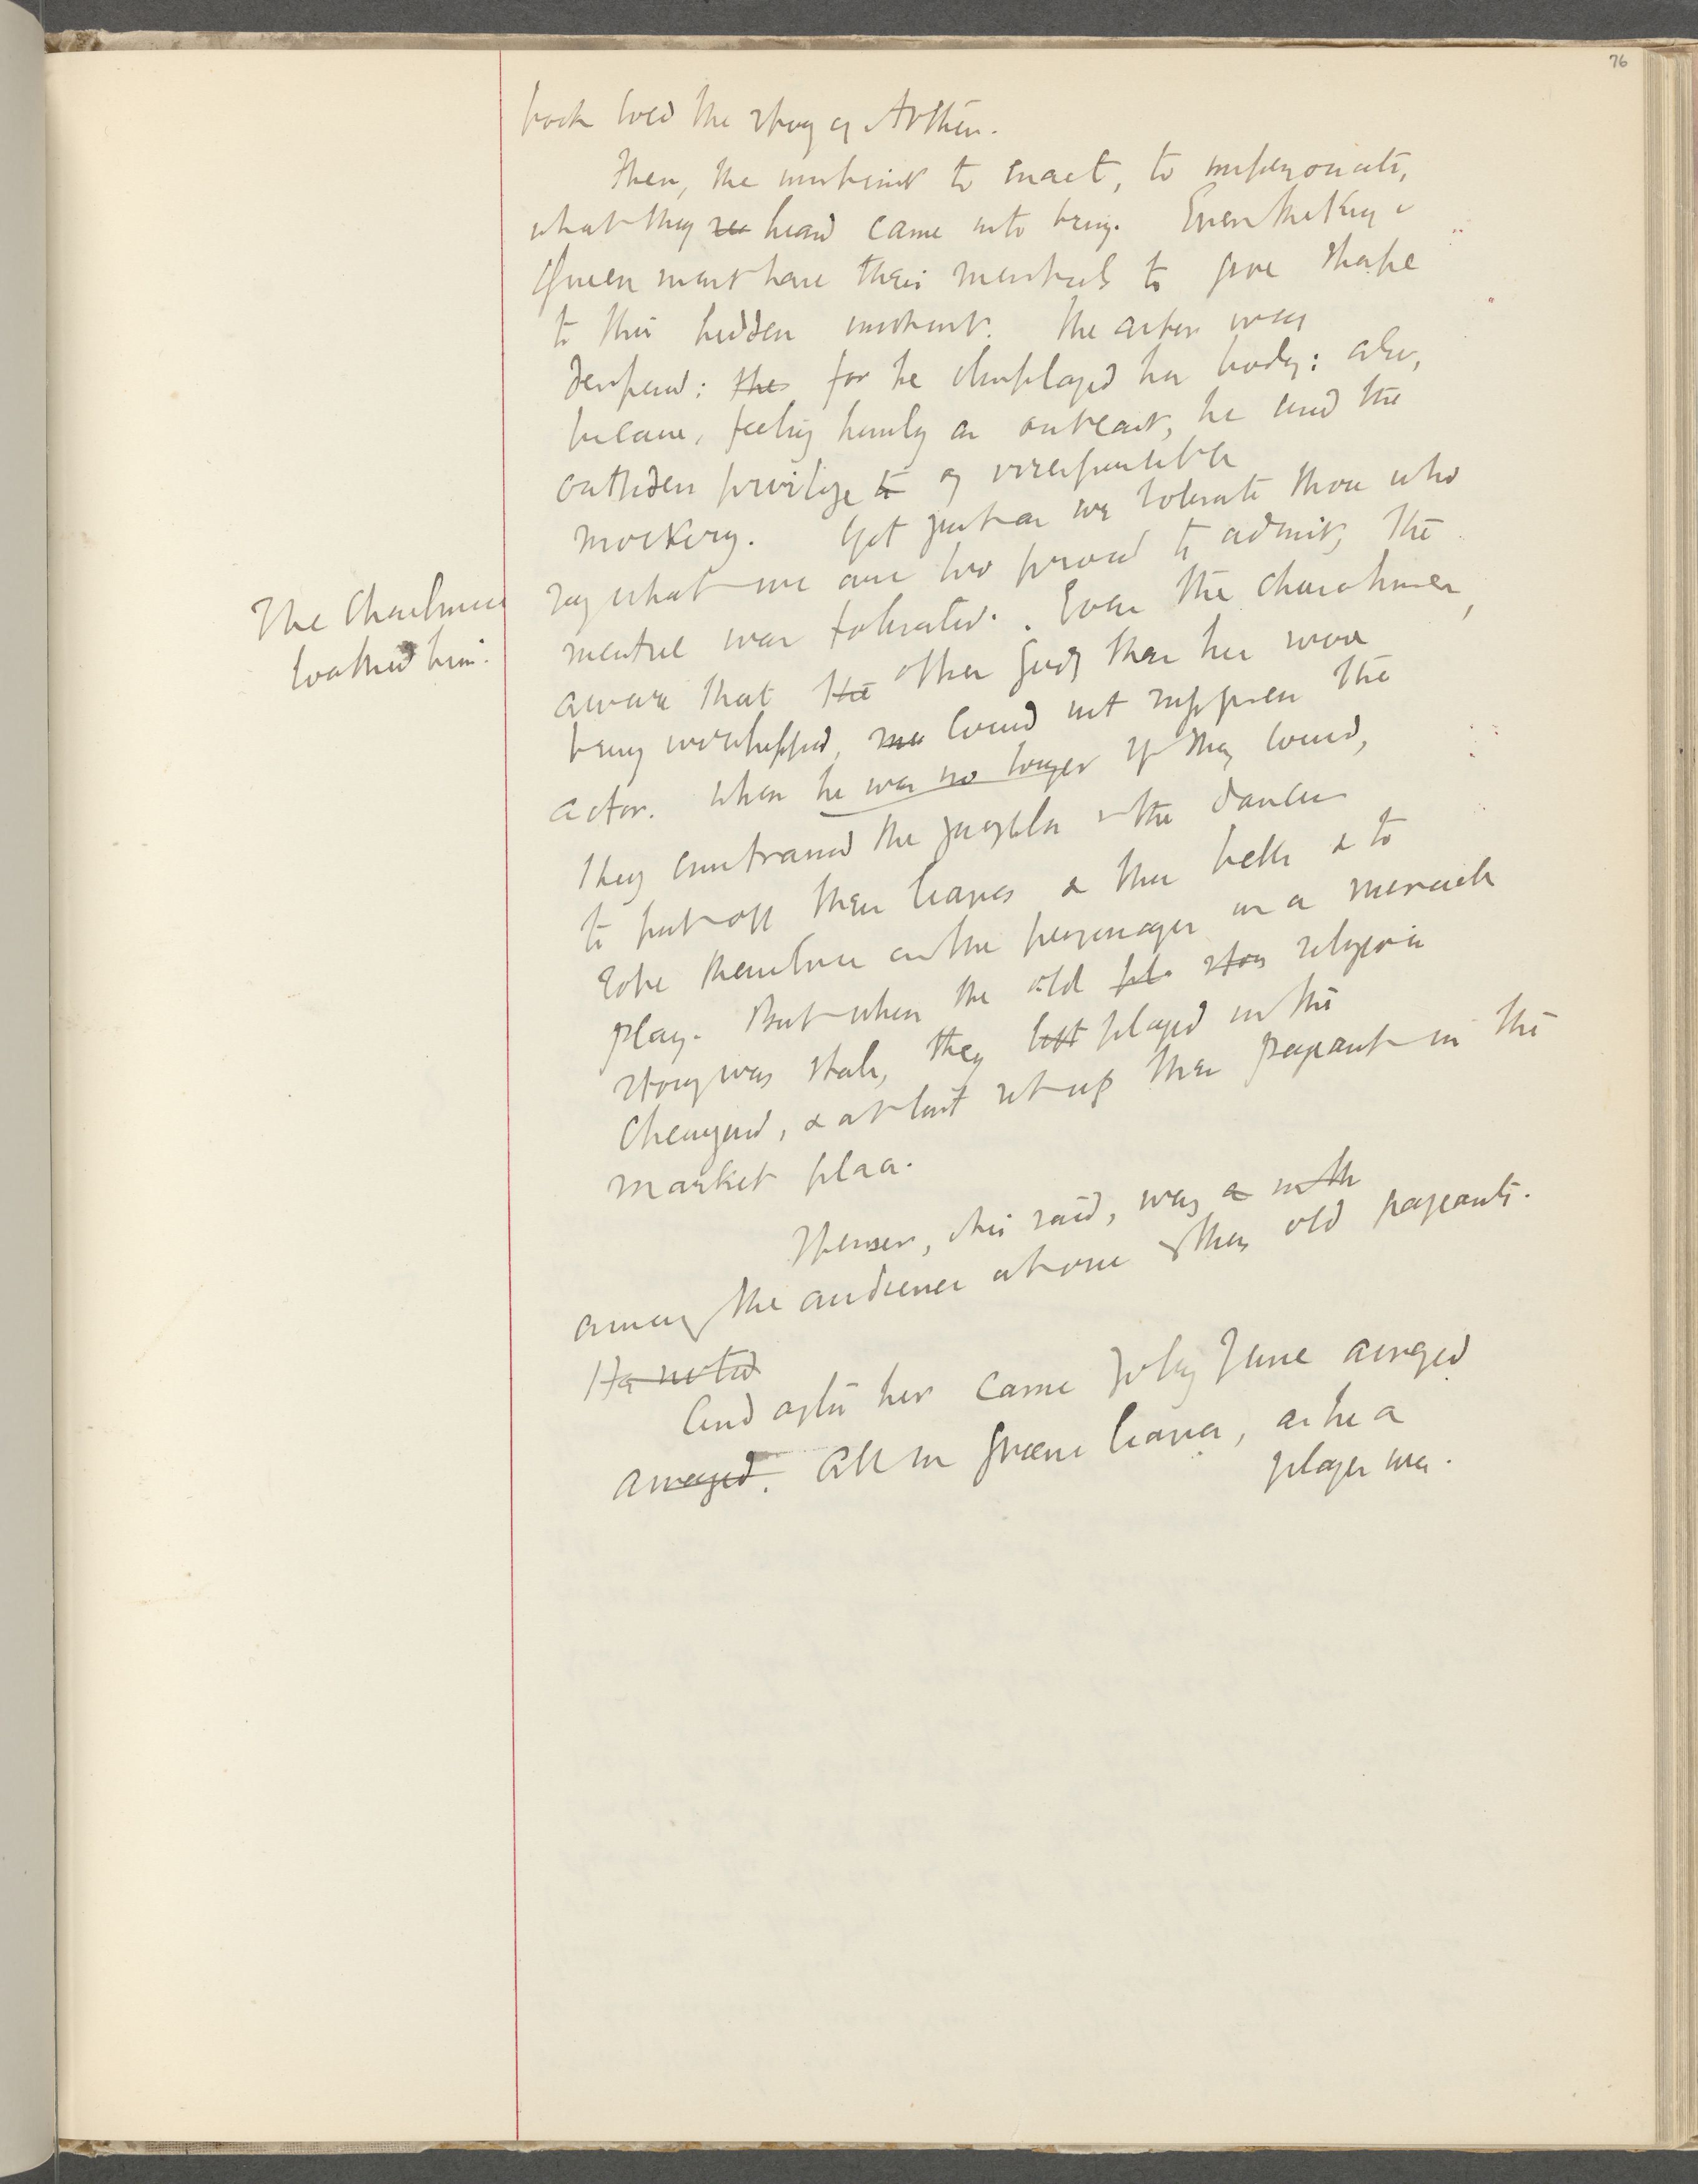 76
book told the story of Arthur.
Then, the instinct to enact, to impersonate,
what they see heard came into being. Even the King &
Queen must have their minstrels to give shape
to this hidden instinct. The actor was
despised: the for he displayed his body: also,
because, feeling himself an outcast, he used the
outsiders privilege to of irresponsible
mockery. Yet just as we tolerate those who
say what we are too proud to admit, the
minstrel was tolerated. Even the churchmen,
The Churchmen
loathed him.
aware that the other gods than his were
being worshipped, could not suppress the
actor. When he was no longer If they could,
they constrained the juggler & the dancer
to put off their leaves & their bells & to
robe themselves as the personages in a miracle
play. But when the old pla stor religious
story was stale, they left played in the
Churchyard, & at last set up their pageant in the
market place.
Spenser, she said, was a in the
among the audience at one of these old pageants.
He noted
And after her came Jolly June arrayed
arrayed. All in greene leaves, as he a
player were.